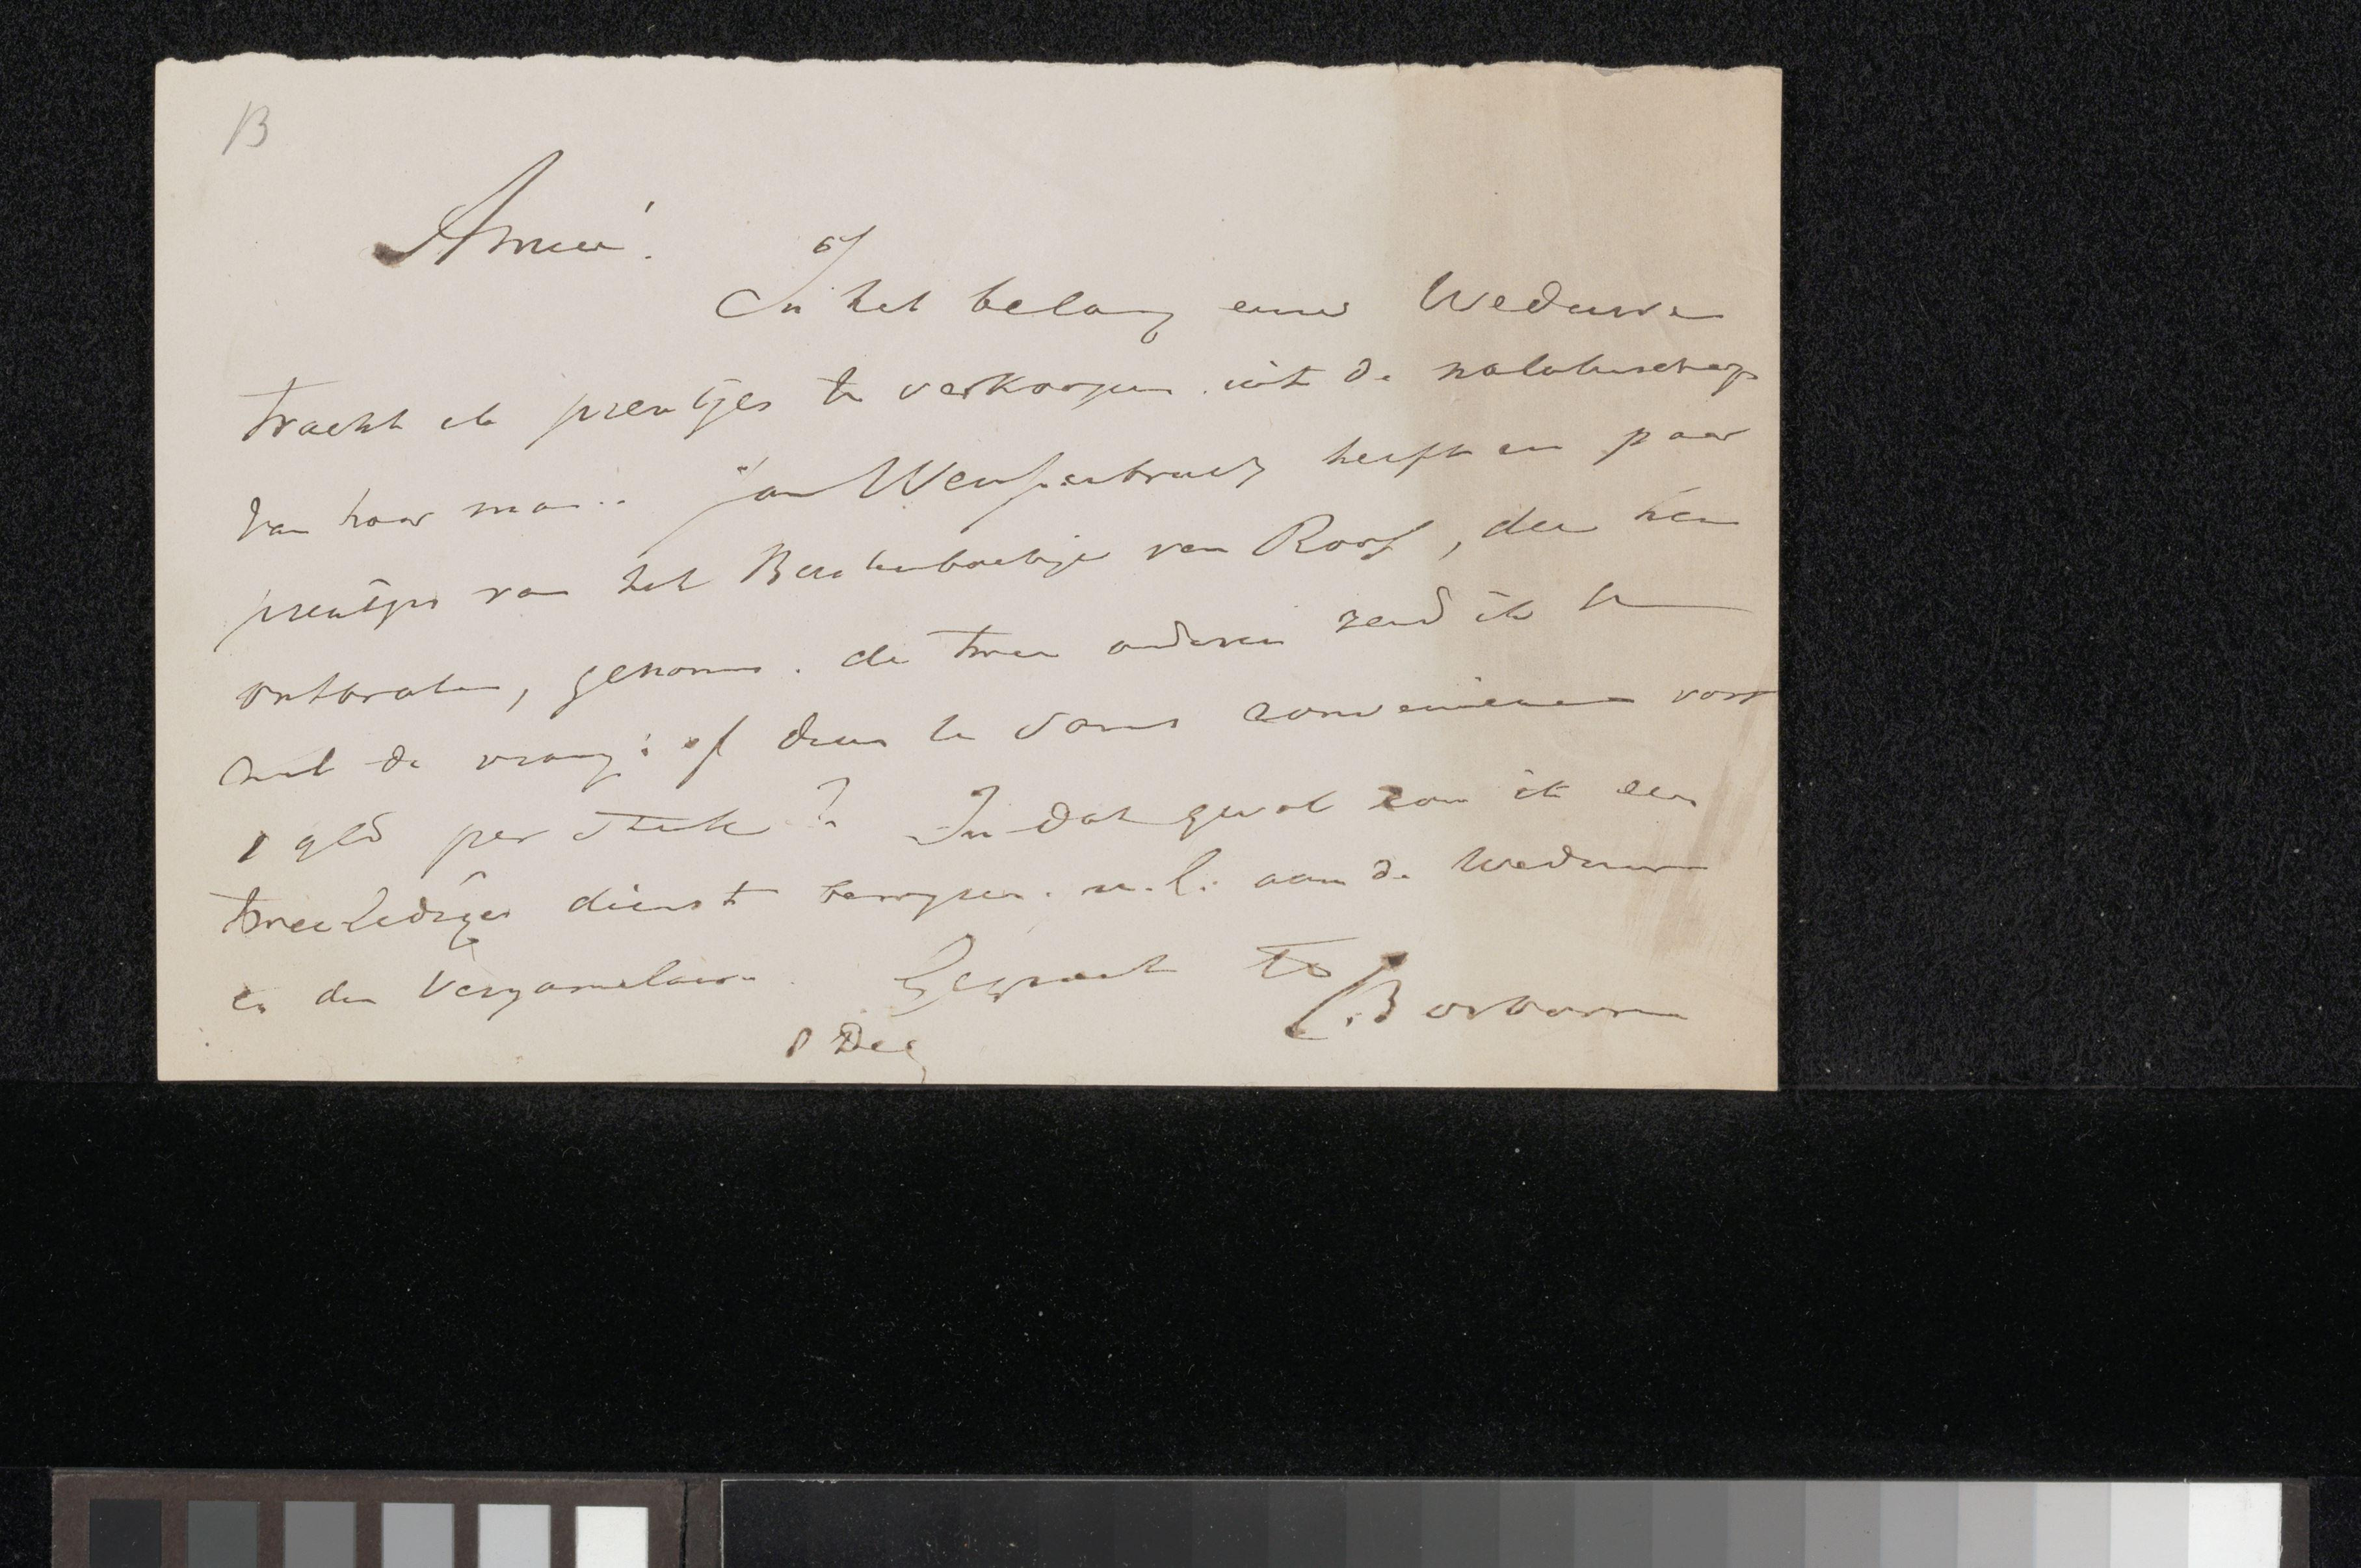 B
Amice!
In het belang eener Weduwe
tracht ik prentjes te verkoopen uit de nalatenschap
van haar man. Jan Weissenbruch heeft een paar
prentjes van het Berckenboschje van Roos, die hem
ontbraken, genomen. de twee anderen zend ik U
met de vraag: of deze te soms convenieeren voor
1 gld per stuk? In dat geval zou ik een
tweeledigen dienst bewijzen. n.l. aan de Weduwe
en den Verzamelaar. Gegroet tt
1 Dec
Bosboom